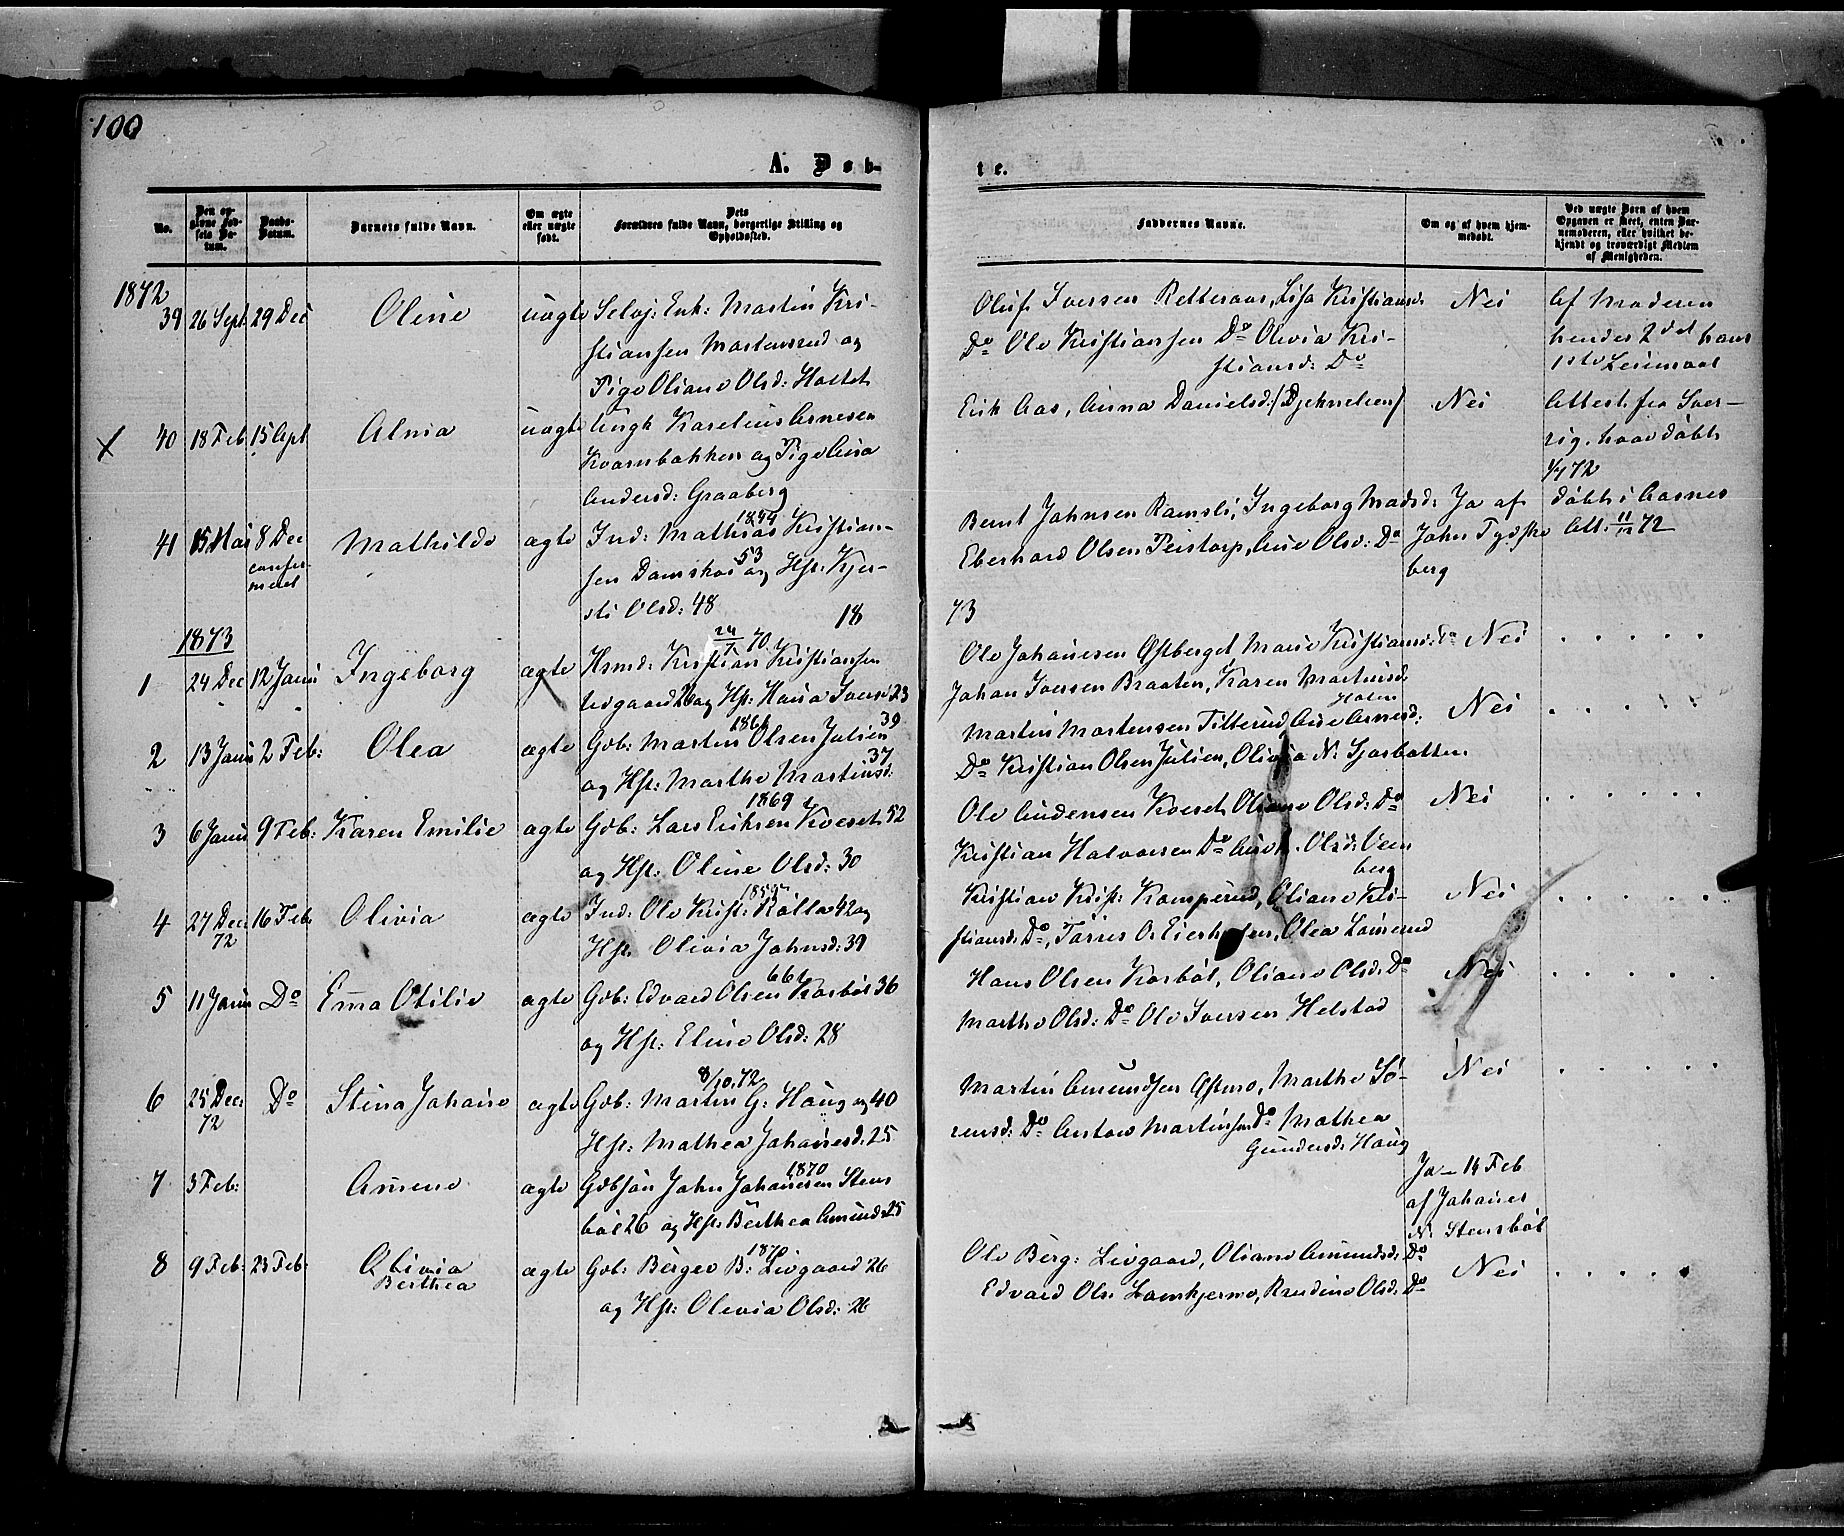 100
A. Døb-
te.
No.
Den opgivne Fødsels Datum.
Daabs-Datum.
Barnets fulde Navn.
Om ægte eller uægte født.
Dets Forældres fulde Navn, borgerlige Stilling og Opholdssted.
Faddernes Navne.
Om og af hvem hjemmedøbt.
Ved uægte Børn af hvem Opgaven er skeet, enten Barnemoderen, eller hvilket bekjendt og troværdigt Medlem af Menigheden.
1872
39 26 Sept 29 Dec Oline uægte Selvej: Enk: Martin Kri-
stiansen Mortensrud og
Pige Oliane Olsd: Holtet
Oluf Iversen Retteraas, Lisa Kristiansd:
Do Ole Kristiansen Do Olivia Kri-
stiansd: Do
Nei
Af Moderen
hendes 2det hans
1ste Leiermaal
X 40 18 Feb 15 Sept Alma uægte Ungk Karelius Arnesen
Kvarnbakken og Pige Ana
Andersd: Graaberg
Erik Aas, Anna Danielsd:
Nei
Attest fra Sver-
rig, hvor døbt
1/4 72
41 15 Mai 8 Dec Mathilde ægte Ind: Mathias Kristian-
confir-
meret
1844
sen Damskos 53 og Hst: Kjer-
sti Olsd: 48
Bernt Johnsen Ramsli, Ingeborg Madsd:
Eberhard Olsen Peistorp, Ane Olsd: Do
Ja af
John Tydske
berg
døbt i Aasnes
Att. 11/12 72
18
73
1873
24/1 70
1 24 Dec 12 Janu Ingeborg ægte Hsmd: Kristian Kristiansen
Livgaard 26 og Hst: Hana Iversd 23
Ole Johanesen Østberget Marie Kristiansd: Do
Johan Iversen Braaten, Karen Martinsd:
Nei
1864
2 13 Janu 2 Feb: Olea ægte Gdb: Martin Olsen Julien 39
og Hst: Marthe Martinsd: 37
Holen
Martin Mortensen Titterud, Ane Arnesd:
Do Kristian Olsen Julien, Olivia N: Sjorbotten
Nei
1869
3 6 Janu 9 Feb: Karen Emilie ægte Gdb: Lars Eriksen Kveset 52
og Hst: Oline Olsd: 30
Ole Audensen Kveset, Oliane Olsd: Do
Kristian Halvorsen Do Olsd: Veen
berg
Nei
4 27 Dec 16 Feb: Olivia ægte Ind: Ole Krist: Kølla 42 og
72
Hst. Olivia Johnsd: 39
Kristian Krist: Kamperud, Oliane Kri-
stiansd: Do, Tørris O. Olea Lømrud
Nei
661
5 11 Janu Do Ema Otilie ægte Gdb: Edvard Olsen Korbøl 36
og Hst: Eline Olsd: 28
Hans Olsen Korbøl, Oliane Olsd: Do
Marthe Olsd: Do Ole Iversen Helstad
Nei
8/10.72
6 25 Dec: Do Stina Johane ægte Gdb: Martin G: Haug og 40
72
Hst: Mathea Johanesd: 25
Martin Amundsen Østmo, Marthe Sø-
rensd: Do Gustav Martinsen Do Mathea
Gundersd: Haug
Nei
1870
7 3 Feb: Amene ægte Gdbsøn John Johanesen Stens
bøl 26 og Hst: Berthea Amunds: 25
Ja - 14 Feb
af Johanes
N: Stensbøl
1870
8 9 Feb: 23 Feb: Olivia ægte Gdb: Berger B: Livgaard 26
Berthea
og Hst: Olevia Olsd: 26
Ole Berg: Livgaard, Oliane Amundsd: Do
Edvard Ols: Lomkjermo, Randine Olsd: Do
Nei